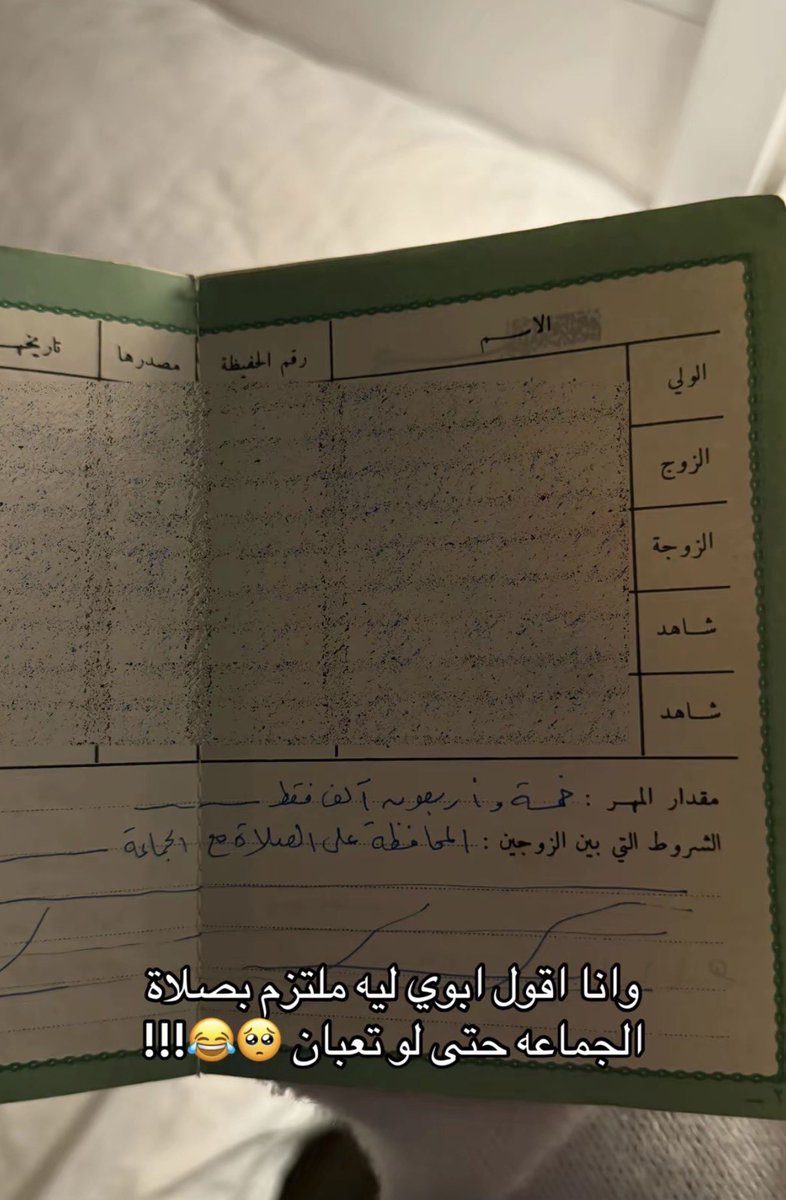 الاسم
رقم الحفيظة
مصدرها
تاريخها
الولي
الزوج
الزوجة
شاهد
شاهد
مقدار المهر : خمسة وأربعون آلف فقط
الشروط التي بين الزوجين : المحافظة على الصلاة مع الجماعة
وانا اقول ابوي ليه ملتزم بصلاة
الجماعه حتى لو تعبان 🥺😂!!!